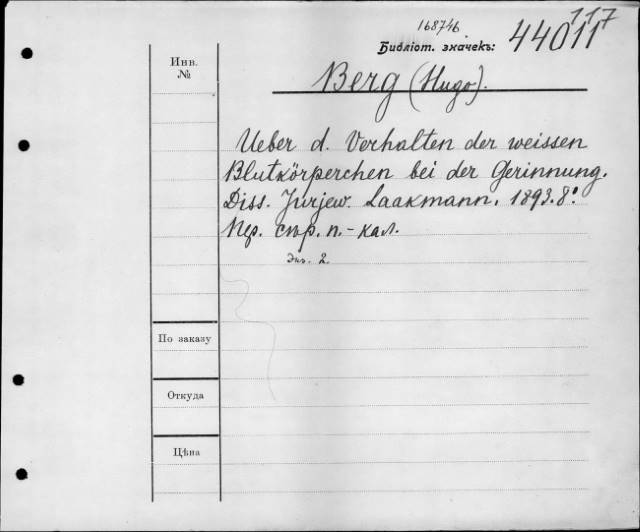 168746
117
Библіот. значекъ: 44011
Инв. №
Berg (Hugo).
Ueber d. Verhalten der weissen
Blutkörperchen bei der Gerinnung.
Diss. Jurjew. Laakmann. 1893. 8º
Пер. сѣр. п.-кал.
Экз. 2.
По заказу
Откуда
Цѣна